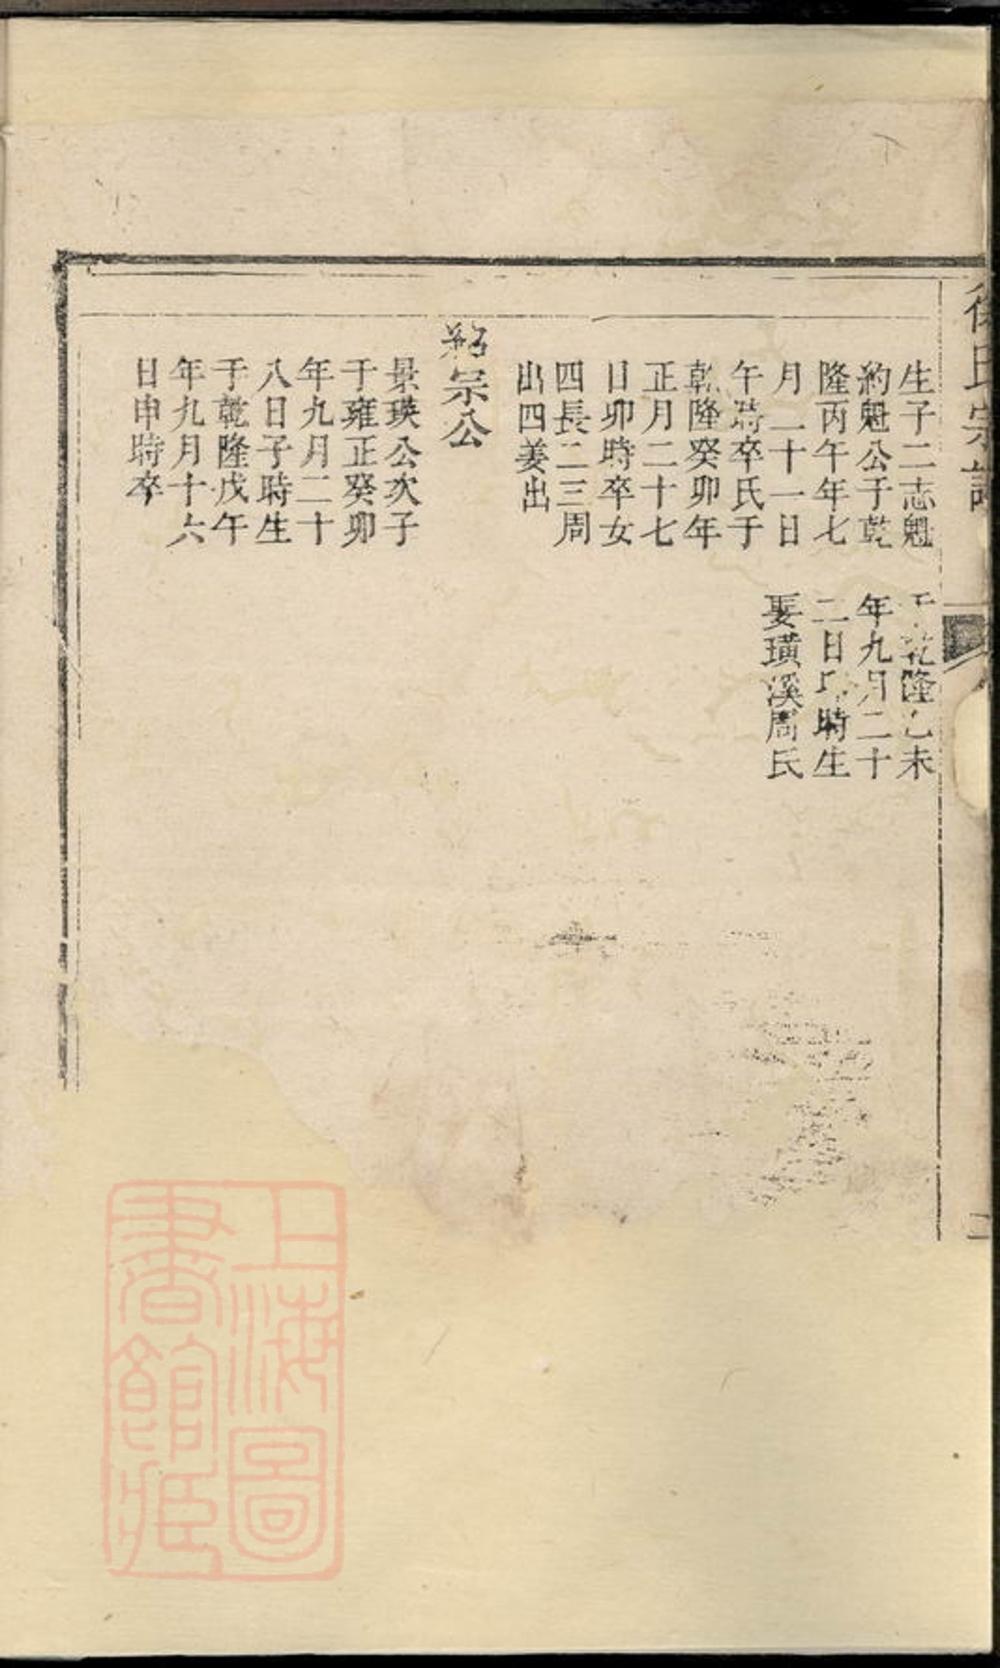 徐氏宗譜
生子二志魁
約魁公于乾
隆丙午年七
月二十一日
午時卒氏于
乾隆癸卯年
正月二十七
日卯時卒女
四長二三周
出四姜出
于乾隆乙未
年九月二十
二日 時生
娶璜溪周氏
紹宗公
景瑛公次子
于雍正癸卯
年九月二十
八日子時生
于乾隆戊午
年九月十六
日申時卒
上海圖
書館藏